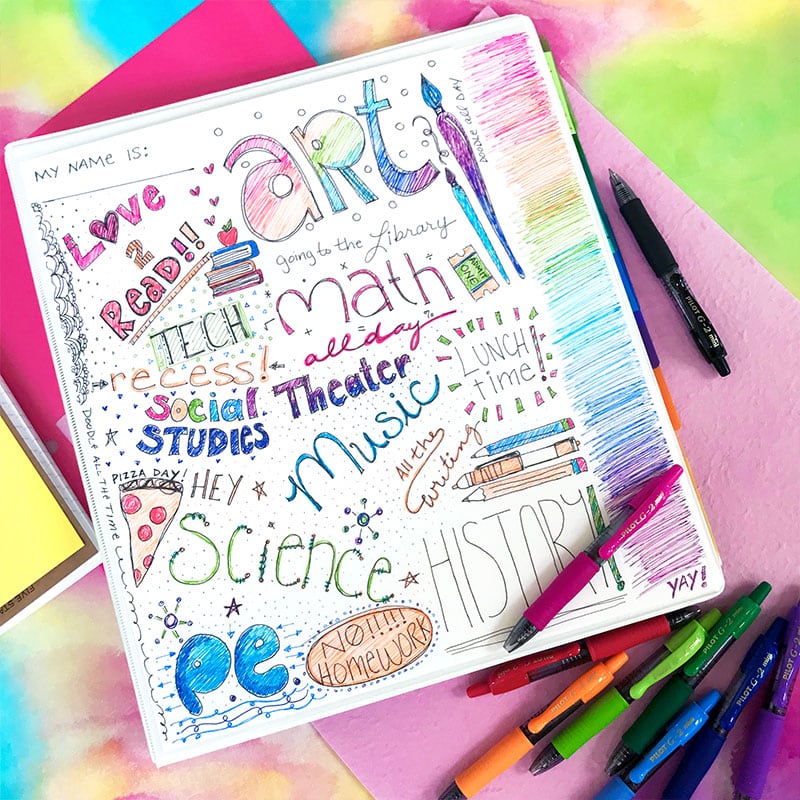 MY NAME IS:
art
DOODLE all DAY
LOVE
2
READ!!
going to the Library
ADMIT
ONE
math
all day
TECH
recess!
LUNCH
time!
SOCIAL
STUDIES
Theater
Music
All the
writing
DOODLE ALL THE TIME
PIZZA DAY!
HEY
Science
HISTORY
pe
NO!!!!
HOMEWORK
YAY!
FIVE STA
PILOT G-2 mini
PILOT G-2
PILOT G-2
PILOT G-2 mini
PILOT